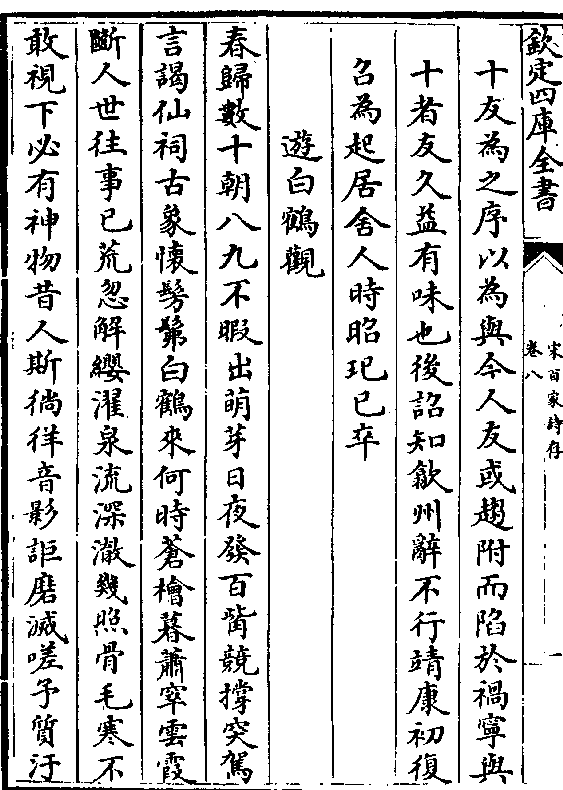 欽定四庫全書
宋百家詩存
卷八
一
十友為之序以為與今人友或趨附而陷於禍寧與
十者友久益有味也後詔知歙州辭不行靖康初復
召為起居舍人時昭玘已卒
遊白鶴觀
春歸數十朝八九不暇出萌芽日夜發百耑競撐突駕
言謁仙祠古象懷髣髴白鶴來何時蒼檜暮蕭窣雲霞
斷人世往事已荒忽解纓濯泉流深澈幾照骨毛寒不
敢視下必有神物昔人斯徜徉音影詎磨滅嗟予質汙